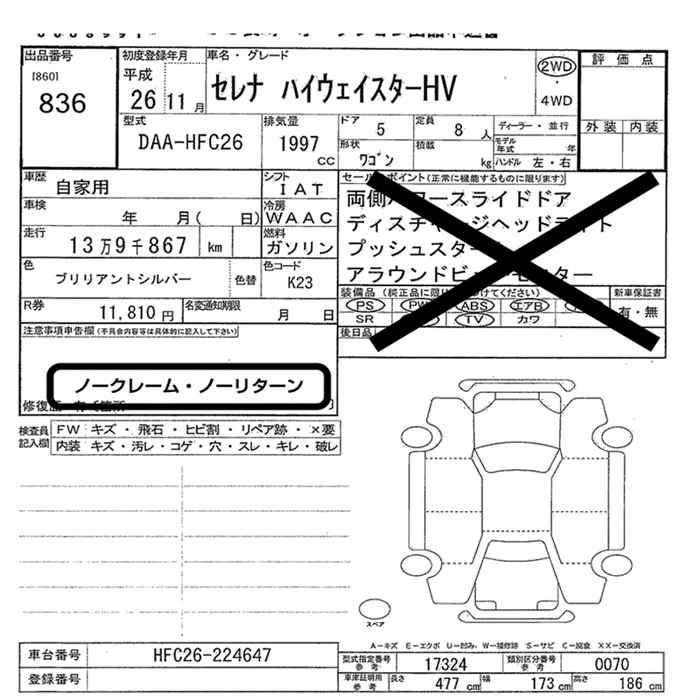 出品番号
[860]
836
初度登録年月
平成
26 11 月
車名・グレード
セレナ ハイウェイスターHV
2WD
・
4WD
評価点
外装 内装
型式
DAA-HFC26
排気量
1997
cc
ドア
5
定員
8 人
ディーラー・並行
モデル
年式 年
形状
ワゴン
積載
kg
ハンドル 左・右
車歴
自家用
シフト
IAT
車検
年 月( 日)
冷房
WAAC
走行
13万9千867 km
燃料
ガソリン
色
ブリリアントシルバー
色替
色コード
K23
R券
11,810 円
名変通知期限
月 日
セールスポイント(正常に機能するものに限ります)
両側パワースライドドア
ディスチャージヘッドライト
プッシュスター
アラウンドビューモニター
装備品(純正品に限り○をつけてください)
PS PW ABS エアB
SR TV カワ
新車保証書
有・無
後日品
注意事項申告欄(不具合内容等は具体的に記入して下さい)
ノークレーム・ノーリターン
修復歴 有 箇所
検査員
記入欄
FW キズ・飛石・ヒビ割・リペア跡・×要
内装 キズ・汚レ・コゲ・穴・スレ・キレ・破レ
スペア
A-キズ E-エクボ U-凹み、W-補修跡 S-サビ C-腐食 XX-交換済
車台番号
HFC26-224647
登録番号
型式指定番号
参考
17324
類別区分番号
参考
0070
車庫証明用
参考
長さ
477 cm
幅
173 cm
高さ
186 cm